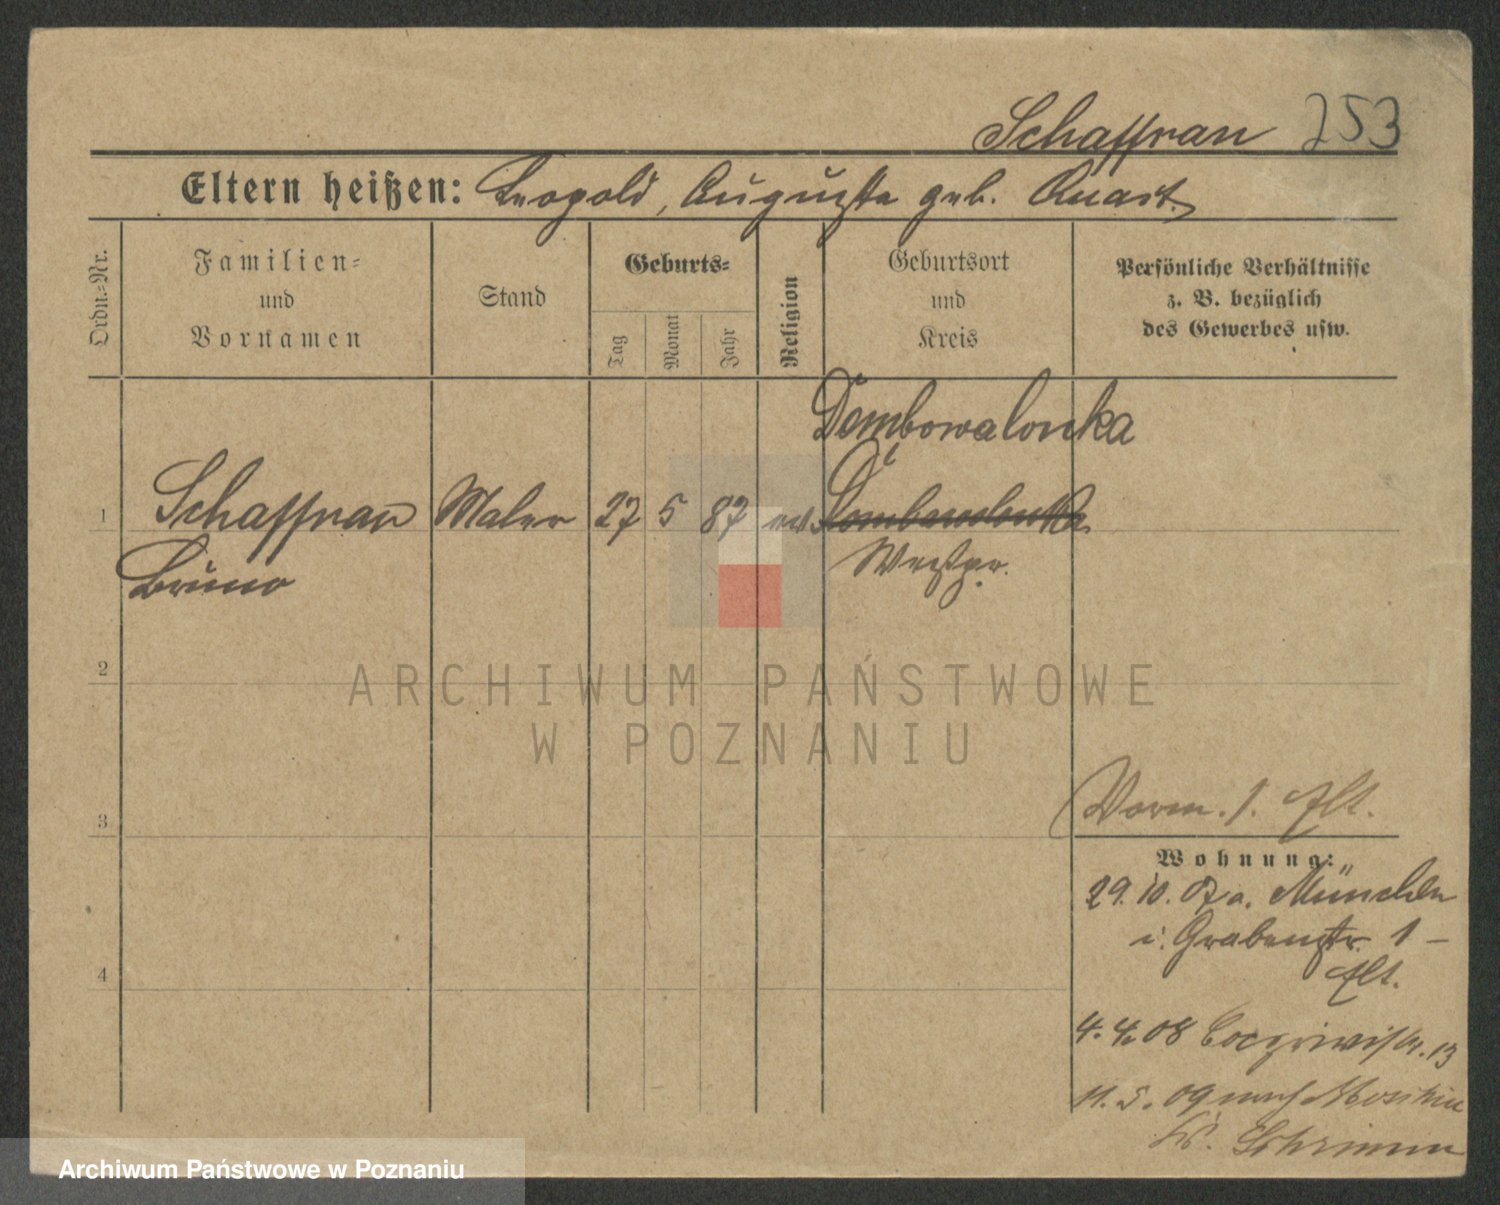 Schaffran 253
Eltern heißen: Leopold, Auguste geb. Quast.
Ordn.-Nr.
Familien- und Vornamen
Stand
Geburts-
Tag
Monat
Jahr
Religion
Geburtsort und Kreis
Persönliche Verhältnisse
z. B. bezüglich
des Gewerbes usw.
Dombowalonka
1 Schaffran Maler 27 5 87 ev. Dombowolonka
Bruno Westpr.
2
ARCHIWUM PAŃSTWOWE
W POZNANIU
Vorm. 1.
3
Wohnung:
29. 10. 07 a. München
i. Grabenstr. 1 –
4
4. 4. 08 13
11. 5. 09 nach Moschin
Kr. Schrimm
Archiwum Państwowe w Poznaniu